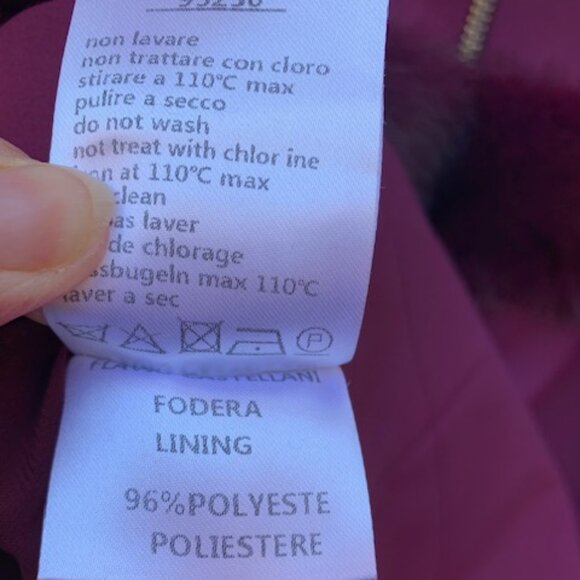 93230
non lavare
non trattare con cloro
stirare a 110°C max
pulire a secco
do not wash
not treat with chlor ine
at 110°C max
clean
laver
de chlorage
max 110°C
laver a sec
P
CASTELLANI
FODERA
LINING
96%POLYESTE
POLIESTERE